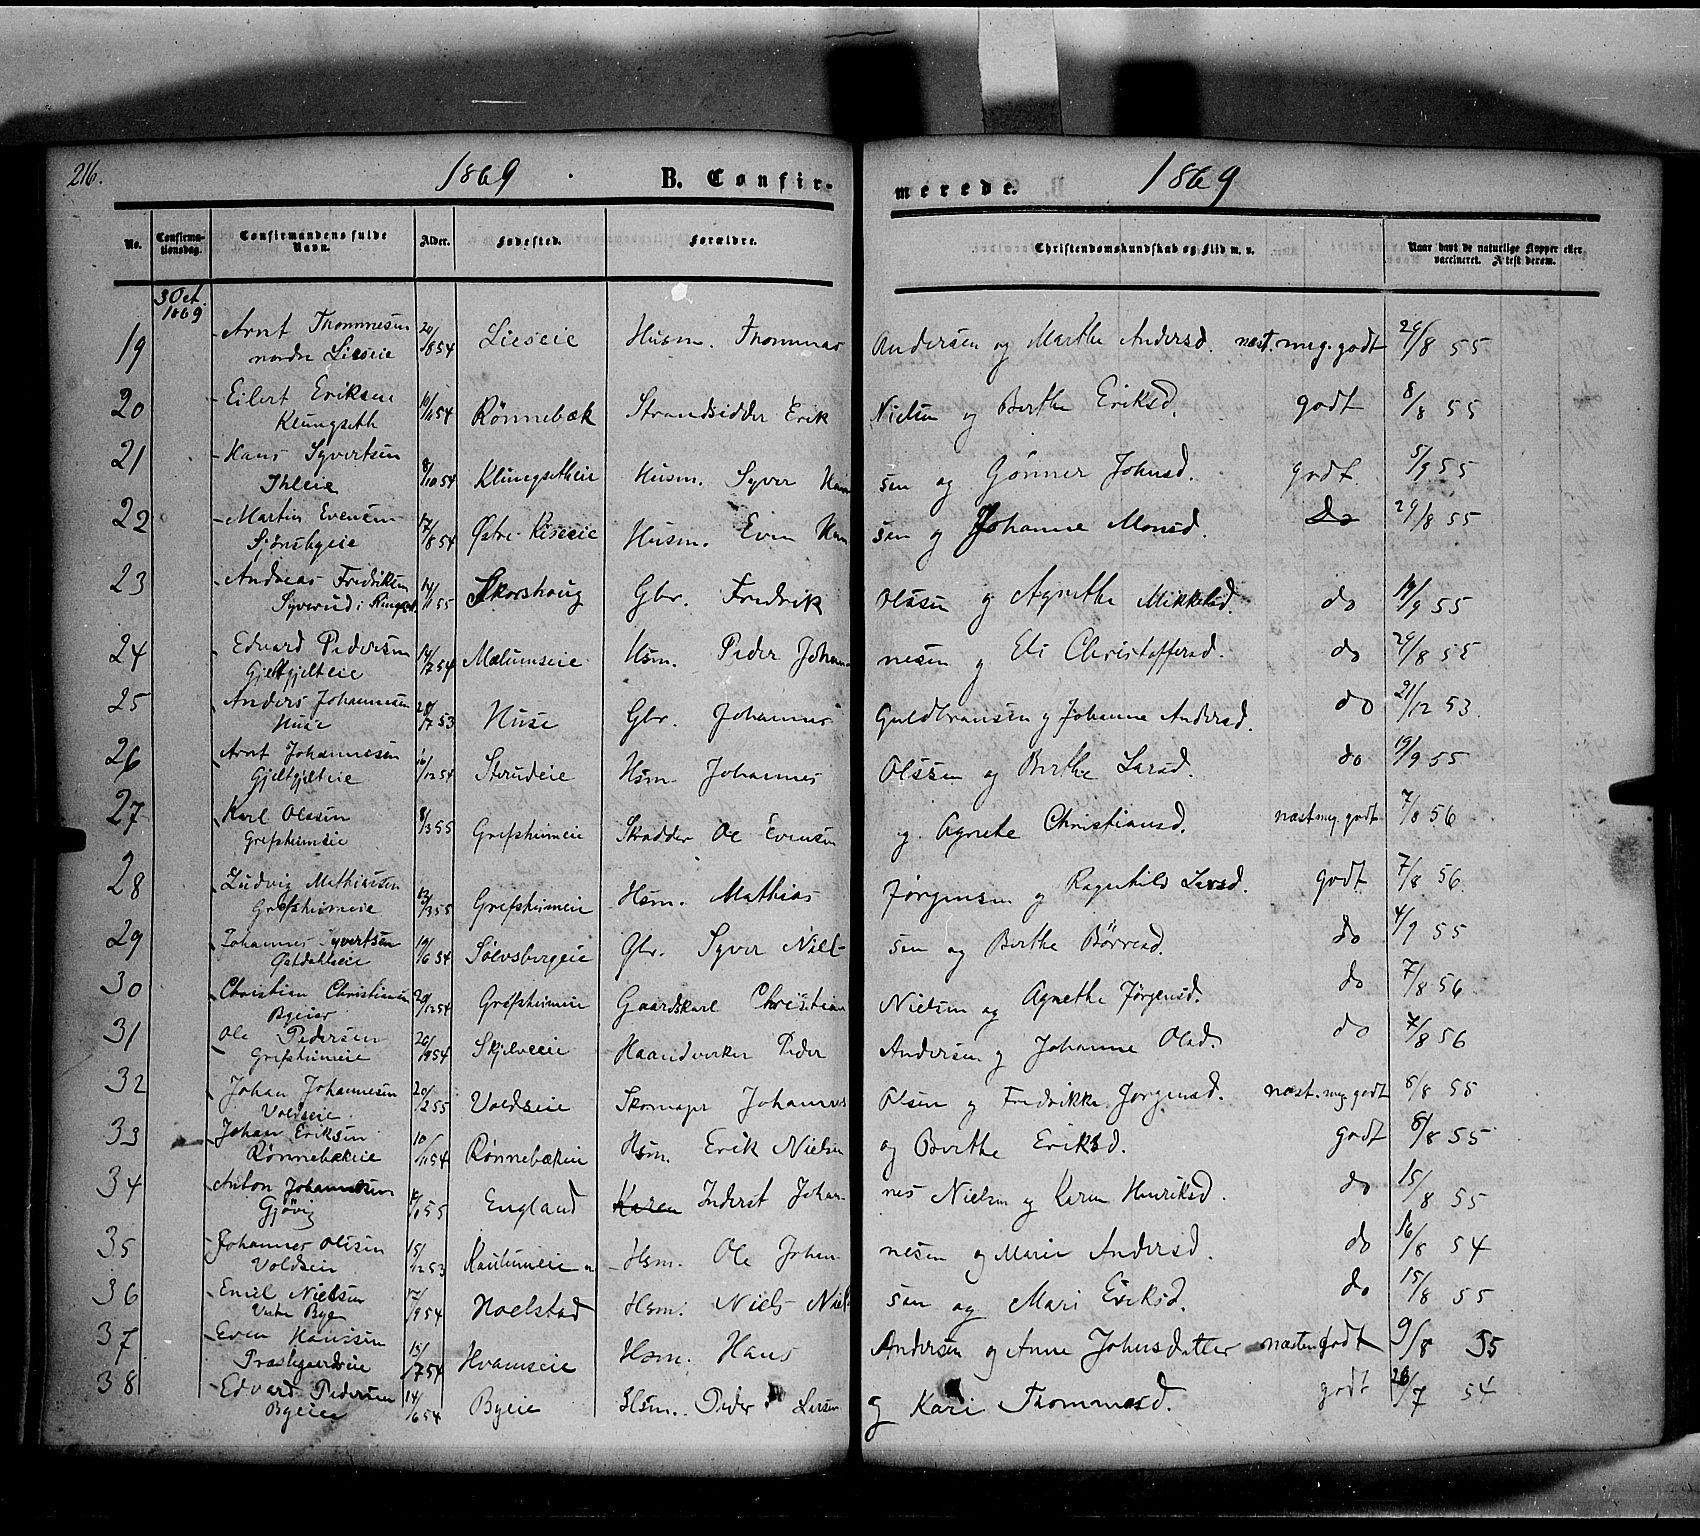 216.
1869
B. Confir-
merede.
1869
No.
Confirmationsdag.
Confirmandens fulde Navn.
Alder.
Fødested.
Forældre.
Christendomskundskab og Flid m. v.
Naar havt de naturlige Kopper eller vaccineret. Attest derom.
3 Oct. 1869
19 Arnt Thommesen nordre Lieseie 20/8 54 Lieseie Husm. Thommas Andersen og Marthe Andersd. næst. meg. godt 29/8 55
20 Eilert Eriksen Klungseth 10/11 54 Rønnebæk Strandsidder Erik Nielsen og Berthe Eriksd. godt 8/8 55
21 Hans Syvertsen Ihleie 8/10 54 Klungsetheie Husm. Syver Han sen og Gønner Johnsd. godt 5/9 55
22 Martin Evensen 17/8 54 Østre Kiseeie Husm. Even Han sen og Johanne Monsd. do 29/8 55
23 Andreas Fredriksen Syverud i Rings. 14/1 55 Skorshoug Gbr. Fredrik Olssen og Agnethe Mikkelsd. do 19/9 55
24 Edvard Pedersen Gjeltgjelteie 14/2 54 Mælumseie Hsm. Peder Johan nesen og Eli Christoffersd. do 29/8 55
25 Anders Johannesen Huse 28/7 53 Huse Gbr. Johannes Guldbransen og Johanne Andersd. do 21/12 53
26 Arnt Johannesen Gjeltgjelteie 16/12 54 Sterudeie Hsm. Johannes Olssen og Berthe Larsd. do 19/9 55
27 Karl Olssen Grefsheimeie 8/3 55 Grefsheimeie Skrædder Ole Evensen og Agnete Christiansd. næst meg. godt 7/8 56
28 Ludvig Mathiassen Grefsheimeie 12/3 55 Grefsheimeie Hsm. Mathias Jørgensen og Ragnhild Larsd. godt 7/8 56
29 Johannes Syvertsen 19/6 54 Sølvsbergeie Gbr. Syver Niel- sen og Berthe Børresd. do 4/9 55
30 Christian Christiansen Byeier 20/12 54 Grefsheimeie Gaardskarl Christian Nielsen og Agnethe Jørgensd. do 7/8 56
31 Ole Pedersen Grefsheimeie 26/9 54 Skjelveeie Haandverker Peder Andersen og Johanne Olsd. do 7/8 56
32 Johan Johannesen Voldseie 20/2 55 Voldseie Skomager Johannes Olsen og Fredrikke Jørgensd. næst. meg godt 6/8 55
33 Johan Eriksen Rønnebækeie 10/11 54 Rønnebækeie Hsm. Erik Nielsen og Berthe Eriksd. godt 6/8 55
34 Anton Johannesen Gjøvig /1 55 England Karen Inderst Johan- nes Nielsen og Karen Henriksd. do 15/8 55
35 Johannes Olssen Voldseie 15/12 53 Kaulumeie Hsm. Ole Johan nesen og Marie Andersd. do 16/8 54
36 Emil Nielsen Vestre Bye 17/9 54 Hoelstad Hsm. Niels Niel sen og Mari Eriksd. do 15/8 55
37 Even Hanssen Præstgaardseie 15/7 54 Hvamseie Hsm. Hans Andersen og Anne Johnsdatter næsten godt 9/8 55
38 Edvard Pedersen Byeie 14/6 54 Byeie Hsm. Peder Larsen og Kari Thommesd. godt 26/7 54